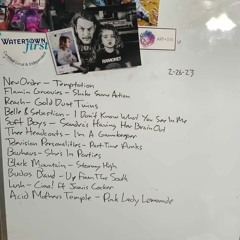 WATERTOWN
first
RAMONES
2-26-23
New Order - Temptation
Flamin Groovies - Shake Some Action
Reach - Gold Dust Twins
Belle & Sebastian - I Don't Know What You See In Me
Soft Boys - Sandra's Having Her Brain Out
Thee Headcoats - I'm A Gamekeeper
Television Personalities - Part Time Punks
Bauhaus - She's In Parties
Black Mountain - Stormy High
Budos Band - Up From The South
Lush - Ciao! ft Jarvis Cocker
Acid Mothers Temple - Pink Lady Lemonade